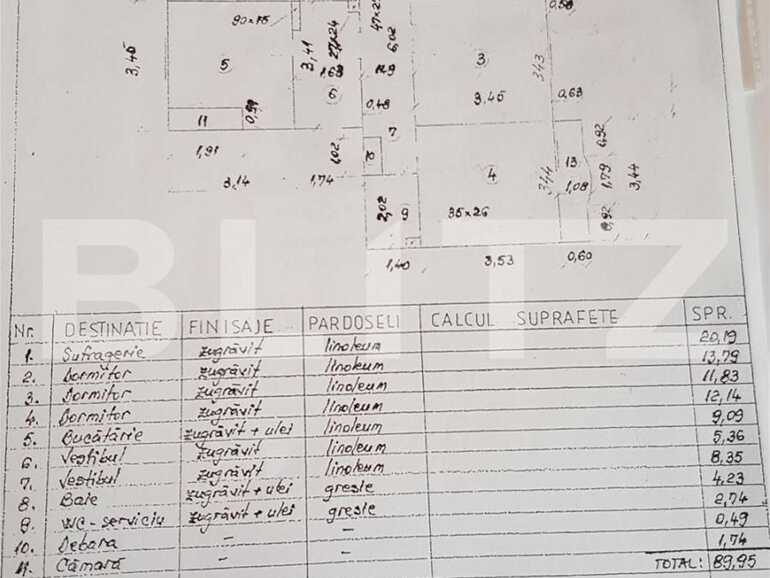 90×75
3,45
5
3,41
27×24
1,63
6
47×2
6,02
3
3,45
343
0,58
0,63
11
0,91
0,48
7
1,91
1,02
3,14
1,74
2,02
9
4
35×26
344
13
1,08
0,92
1,79
0,92
3,44
1,40
3,53
0,60
BLITZ
Nr. DESTINATIE FINISAJE PARDOSELI CALCUL SUPRAFETE SPR.
1. Sufragerie zugrăvit linoleum 20,19
2. Dormitor zugrăvit linoleum 13,79
3. Dormitor zugrăvit linoleum 11,83
4. Dormitor zugrăvit linoleum 12,14
5. Bucătărie zugrăvit + ulei linoleum 9,09
6. Vestibul zugrăvit linoleum 5,36
7. Vestibul zugrăvit linoleum 8,35
8. Baie zugrăvit + ulei gresie 4,23
9. WC-serviciu zugrăvit + ulei gresie 2,74
10. Debara - - 0,49
11. Cămară - - 1,74
TOTAL: 89,95